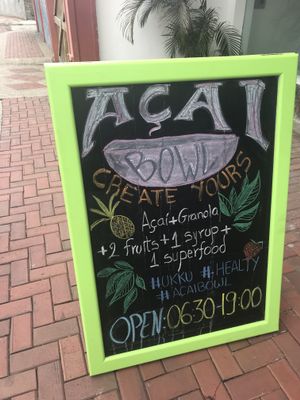 AÇAI
BOWL
CREATE YOURS
Açaí+Granola
+2 fruits+1 syrup+
1 superfood
#UKKU #HEALTY
#ACAIBOWL
OPEN: 06:30-19:00